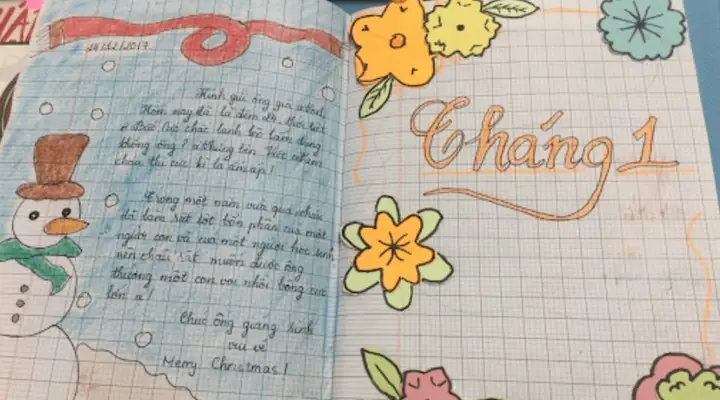 24/12/2017
Kính gửi ông già Noel,
Hôm nay đã là đêm 24, thời tiết
ở Bắc Cực chắc lạnh lẽo lắm đúng
không ông? Ở thưng tên Việt Nam
cháu thì cực kì là ấm áp!
Trong một năm vừa qua, cháu
đã làm rất tốt bổn phận của một
người con và của một người học sinh
nên cháu rất muốn được ông
thưởng một con voi nhồi bông cực
lớn ạ!
Chúc ông giáng sinh
vui vẻ
Merry Christmas!
Tháng 1